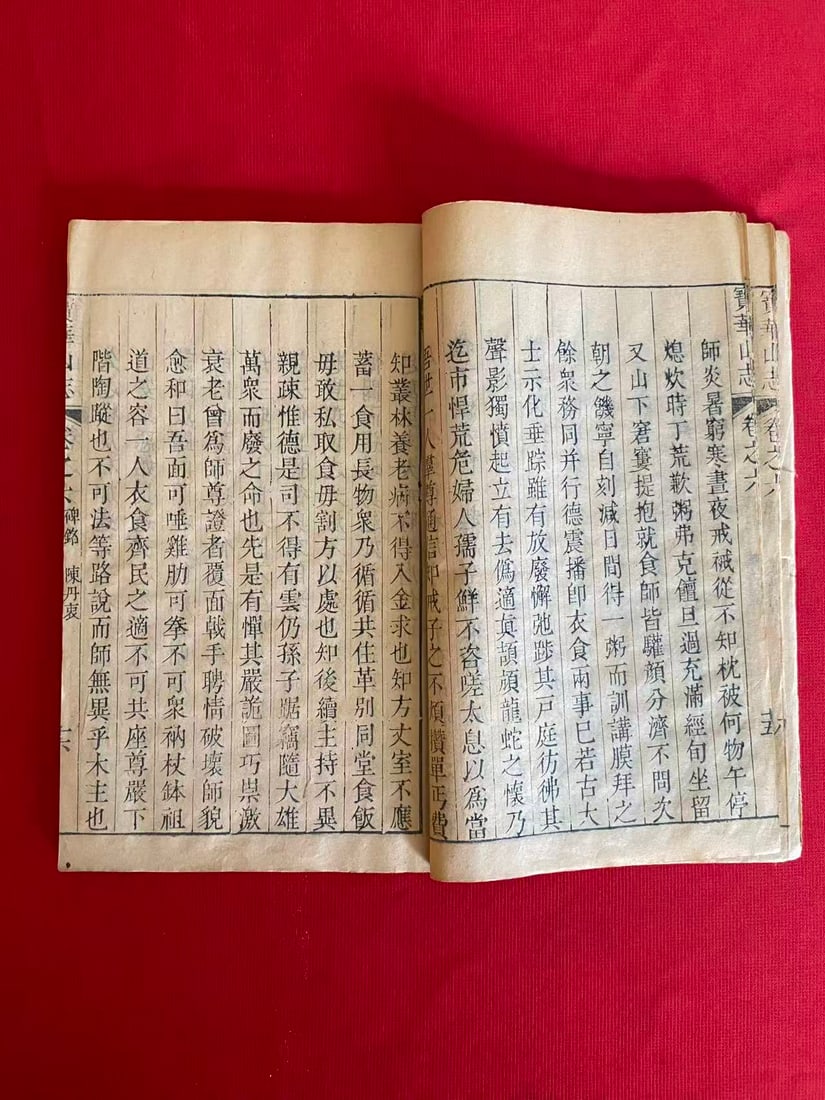 寶華山志
卷之六
寶華山志
卷之六
五
師炎暑窮寒晝夜戒祴從不知枕被何物午停
熄炊時丁荒歉粥弗克饘旦過充滿經旬坐留
又山下窘寠提抱就食師皆驩顏分濟不問次
朝之饑寧自刻減日問得一粥而訓講膜拜之
餘衆務同并行德震播卽衣食兩事巳若古大
士示化垂踪雖有放廢懈弛跡其戸庭彷彿其
聲影獨憤起立有去僞適眞頡頏龍蛇之懷乃
迄市悍荒危婦人孺子鮮不咨嗟太息以爲當
吾世一人蓳尊通信知戒子之不煩
知叢林養老病不得入金求也知方丈室不應
蓄一食用長物衆乃循循共住革别同堂食飯
毋敢私取食毋割方以處也知後續主持不異
親疎惟德是司不得有雲仍孫子踞竊隨大雄
萬衆而廢之命也先是有憚其嚴詭圖巧祟激
衰老曾爲師尊證者覆面戟手聘情破壞師貌
愈和曰吾面可唾雞肋可拳不可衆衲杖鉢祖
道之容一人衣食齊民之適不可共座尊嚴下
階陶蹤也不可法等路說而師無異乎木主也
寶華山志
卷之六
碑銘
陳丹衷
六